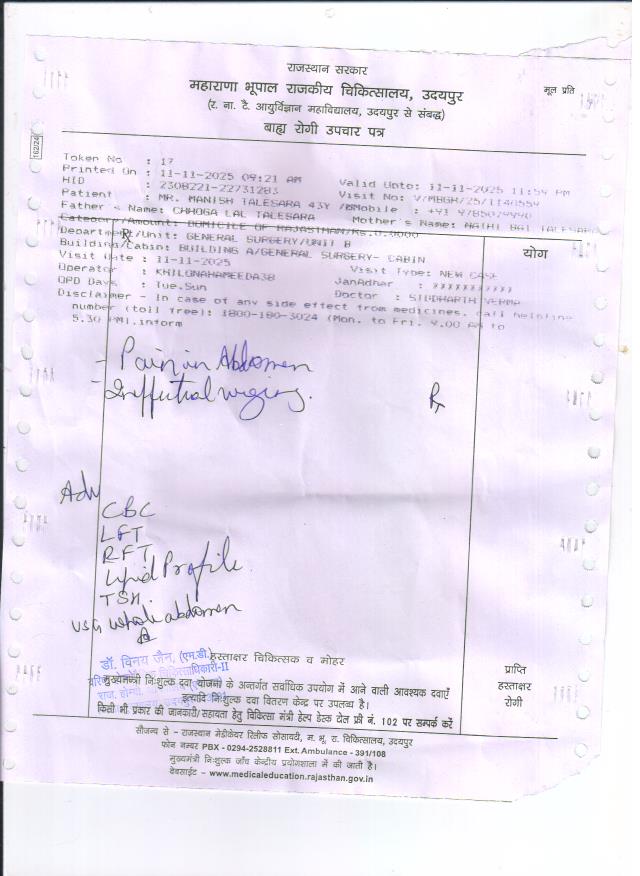 राजस्थान सरकार
महाराणा भूपाल राजकीय चिकित्सालय, उदयपुर
मूल प्रति
(र. ना. टै. आयुर्विज्ञान महाविद्यालय, उदयपुर से संबद्ध)
बाह्य रोगी उपचार पत्र
162/24
Token No : 17
Printed On : 11-11-2025 09:21 AM Valid Upto: 11-11-2025 11:54 PM
HID : 2308221-22731283 Visit No: V/MBGH/25/1140554
Patient : MR. MANISH TALESARA 43Y /Mobile : +91
Father's Name: CHHOGA LAL TALESARA Mother's Name: TALESARA
Category/Amount: DOMICILE OF RAJASTHAN/Rs.0.0000
Department/Unit: GENERAL SURGERY/UNIT B
योग
Building/Cabin: BUILDING A/GENERAL SURGERY- CABIN
Visit Date : 11-11-2025 Visit Type: NEW CASE
Operator : KHILONAHAMEEDA38 JanAdhar :
OPD Days : Tue.Sun Doctor : SIDDHARTH VERMA
Disclaimer - In case of any side effect from medicines, call helpline
number (toll free): 1800-180-3024 (Mon. to Fri. 9.00 AM to
5.30 PM).inform
- Pain in Abdomen
-
Rx
Adv
CBC
LFT
RFT
Lipid Profile
TSH.
USG whole abdomen
डॉ. विनय जैन, (एम.डी.)
हस्ताक्षर चिकित्सक व मोहर
प्राप्ति
हस्ताक्षर
रोगी
मुख्यमन्त्री निःशुल्क दवा योजना के अन्तर्गत सर्वाधिक उपयोग में आने वाली आवश्यक दवाएँ
इत्यादि निःशुल्क दवा वितरण केन्द्र पर उपलब्ध है।
किसी भी प्रकार की जानकारी/सहायता हेतु चिकित्सा मंत्री हेल्प डेस्क टोल फ्री नं. 102 पर सम्पर्क करें
सौजन्य से - राजस्थान मेडीकेयर रिलीफ सोसायटी, म. भू. रा. चिकित्सालय, उदयपुर
फोन नम्बर PBX - 0294-2528811 Ext. Ambulance - 391/108
मुख्यमंत्री निःशुल्क जाँच केन्द्रीय प्रयोगशाला में की जाती है।
वेबसाईट - www.medicaleducation.rajasthan.gov.in